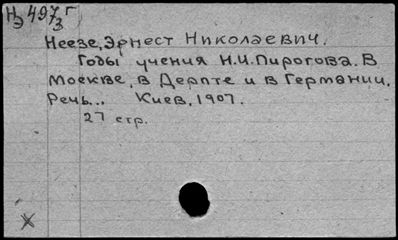 НЭ 497/3 Г
Неезе, Эрнест Николаевич.
Годы учения Н.И. Пирогова. В
Москве, в Дерпте и в Германии.
Речь... Киев, 1907.
27 стр.
X